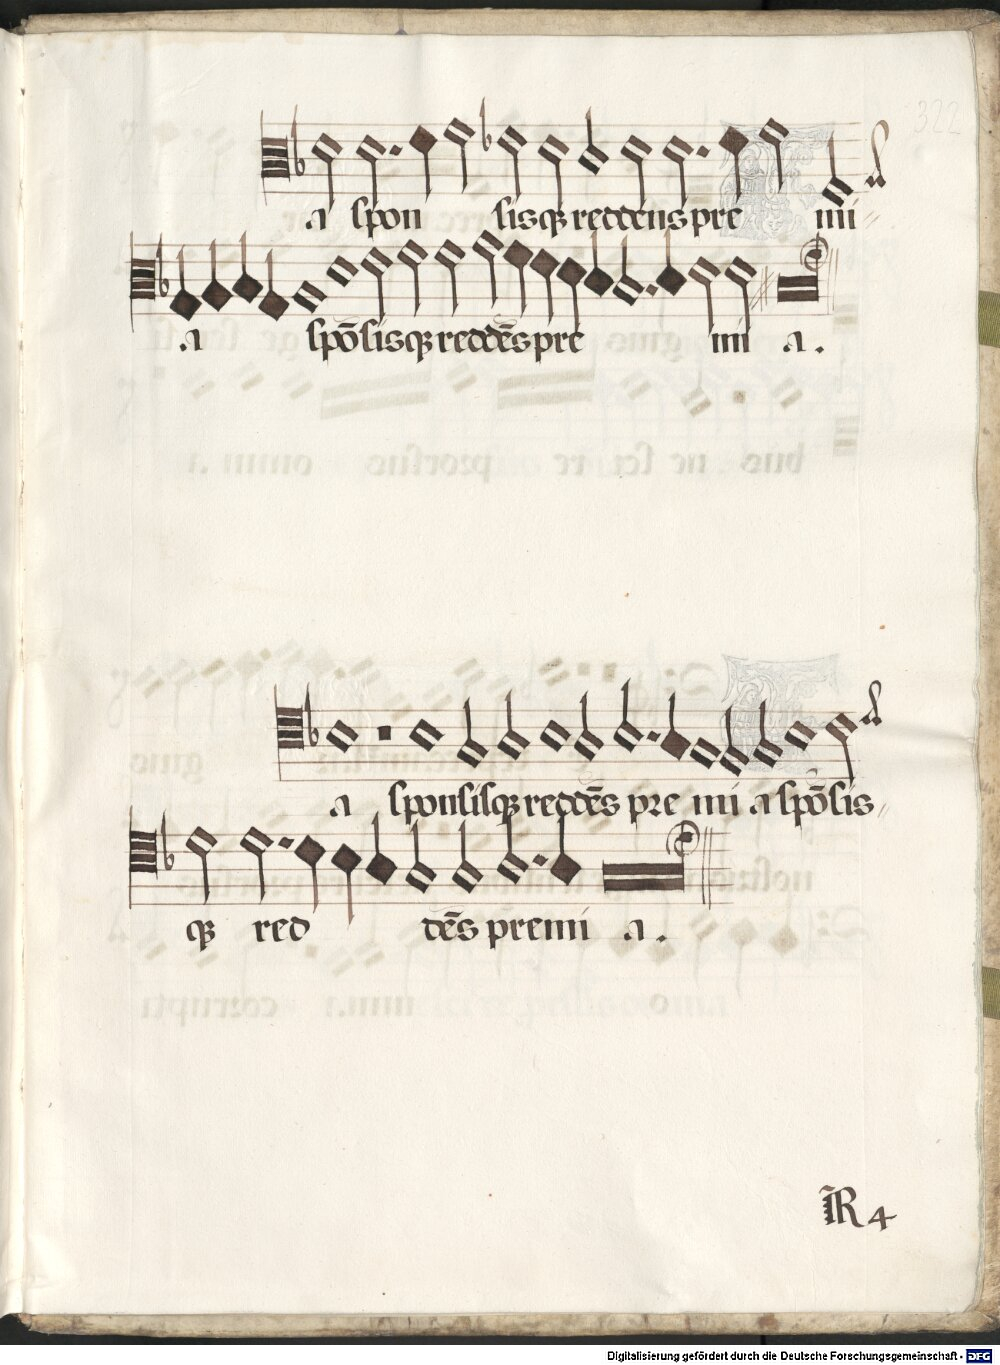 322
a spon sisq̄ reddens pre mi
a spōsisq̄ reddēs pre mi a.
a sponsisq̄ reddēs pre mi a spōsis
q̄ red dēs premi a.
R 4
Digitalisierung gefördert durch die Deutsche Forschungsgemeinschaft - DFG